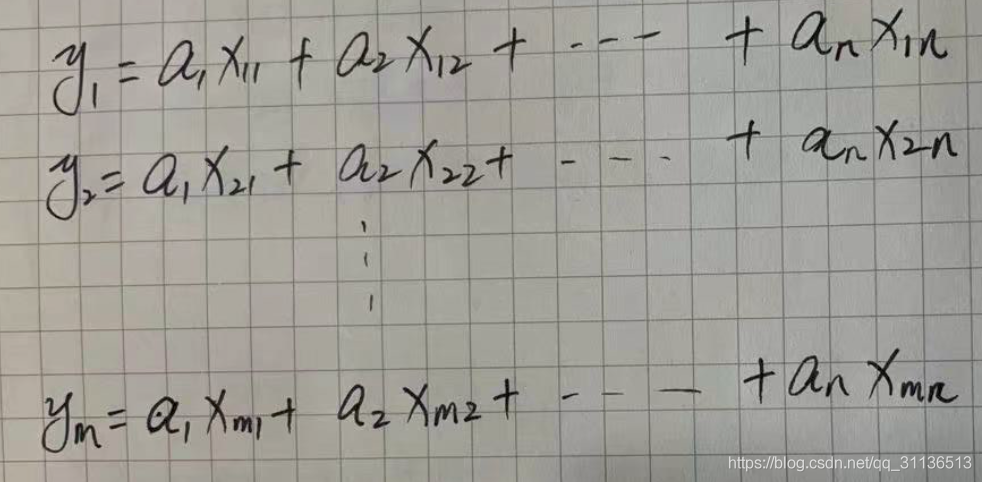 y₁ = a₁x₁₁ + a₂x₁₂ + --- + aₙx₁ₙ
y₂ = a₁x₂₁ + a₂x₂₂ + --- + aₙx₂ₙ
⋮
yₘ = a₁xₘ₁ + a₂xₘ₂ + --- + aₙxₘₙ
https://blog.csdn.net/qq_31136513